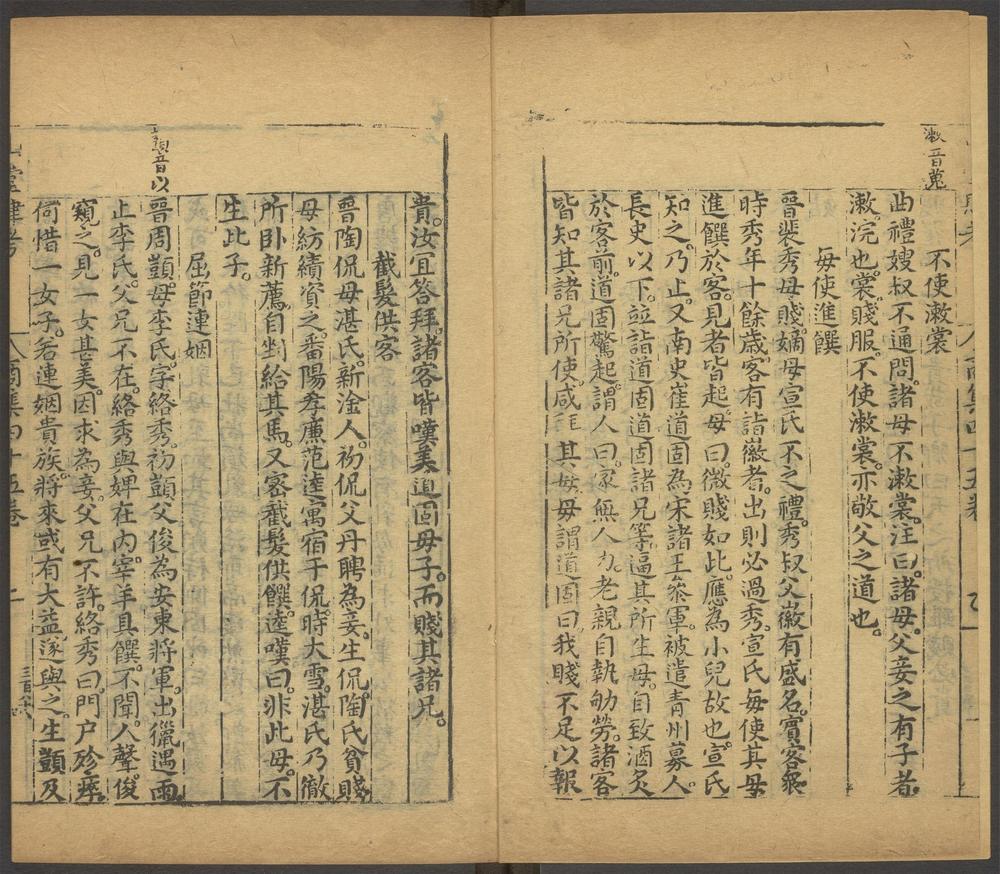 漱音瘦
不使漱裳
曲禮嫂叔不通問。諸母不漱裳。注曰。諸母。父妾之有子者。
漱。浣也。裳。賤服。不使漱裳。亦敬父之道也。
毋使進饌
晉裴秀母賤。嫡母宣氏不之禮。秀叔父徽有盛名。賓客衆。
時秀年十餘歲。客有詣徽者。出則必過秀。宣氏每使其母
進饌於客。見者皆起。母曰。微賤如此。應為小兒故也。宣氏
知之。乃止。又南史崔道固為宋諸王參軍。被遣青州募人。
長史以下。竝詣道固。道固諸兄等。逼其所生母。自致酒炙
於客前。道固驚起。謂人曰。家無人力。老親自執劬勞。諸客
皆知其諸兄所使。咸拜其母。母謂道固曰。我賤不足以報
貴。汝宜答拜。諸客皆嘆美道固母子。而賤其諸兄。
截髮供客
晉陶侃母湛氏。新淦人。初侃父丹聘為妾。生侃。陶氏貧賤。
母紡績資之。番陽孝廉范逵寓宿于侃。時大雪。湛氏乃徹
所卧新薦。自剉給其馬。又密截髮供饌。逵嘆曰。非此母。不
生此子。
屈節連姻
顗音以
晉周顗。母李氏。字絡秀。初顗父俊為安東將軍。出獵遇雨。
止李氏。父兄不在。絡秀與婢在内。宰羊具饌。不聞人聲。俊
窺之。見一女甚美。因求為妾。父兄不許。絡秀曰。門户殄瘁。
何惜一女子。若連姻貴族。將來或有大益。遂與之。生顗及
山堂肆考
商集四十五卷
二
三百六八